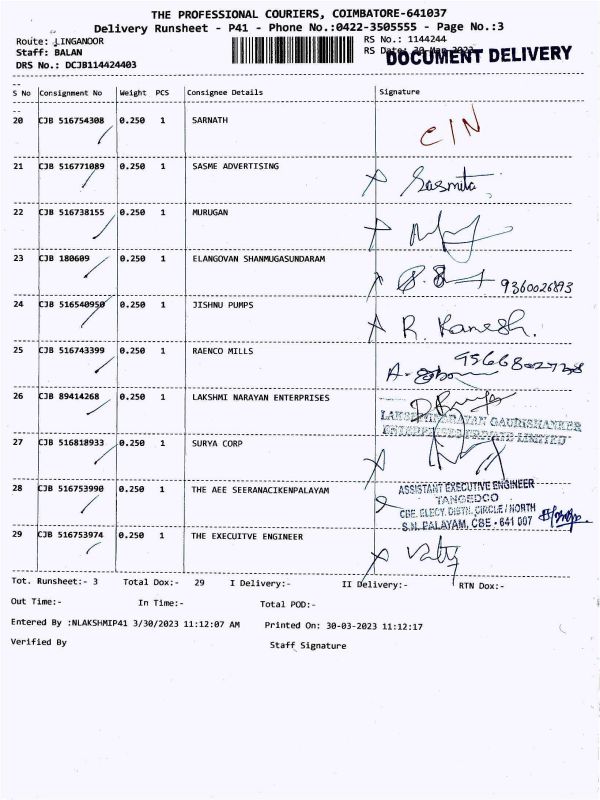 THE PROFESSIONAL COURIERS, COIMBATORE-641037
Delivery Runsheet - P41 - Phone No.:0422-3505555 - Page No.:3
Route: LINGANOOR
RS No.: 1144244
Staff: BALAN
RS Date: 30-Mar-2023
DOCUMENT DELIVERY
DRS No.: DCJB114424403
S No Consignment No Weight PCS Consignee Details Signature
20 CJB 516754308 0.250 1 SARNATH C/N
21 CJB 516771089 0.250 1 SASME ADVERTISING Sasmita
22 CJB 516738155 0.250 1 MURUGAN
23 CJB 180609 0.250 1 ELANGOVAN SHANMUGASUNDARAM
9360026893
24 CJB 516540950 0.250 1 JISHNU PUMPS R. Kanesh.
25 CJB 516743399 0.250 1 RAENCO MILLS
26 CJB 89414268 0.250 1 LAKSHMI NARAYAN ENTERPRISES
LAKSHMINARAYAN GAURISHANKER
ENTERPRISES PRIVATE LIMITED
27 CJB 516818933 0.250 1 SURYA CORP
28 CJB 516753990 0.250 1 THE AEE SEERANACIKENPALAYAM
ASSISTANT EXECUTIVE ENGINEER
TANGEDCO
CBE. ELECY. DISTN. CIRCLE / NORTH
S.N. PALAYAM, CBE - 641 007
29 CJB 516753974 0.250 1 THE EXECUITVE ENGINEER
Tot. Runsheet:- 3 Total Dox:- 29 I Delivery:- II Delivery:- RTN Dox:-
Out Time:- In Time:- Total POD:-
Entered By :NLAKSHMIP41 3/30/2023 11:12:07 AM Printed On: 30-03-2023 11:12:17
Verified By Staff Signature